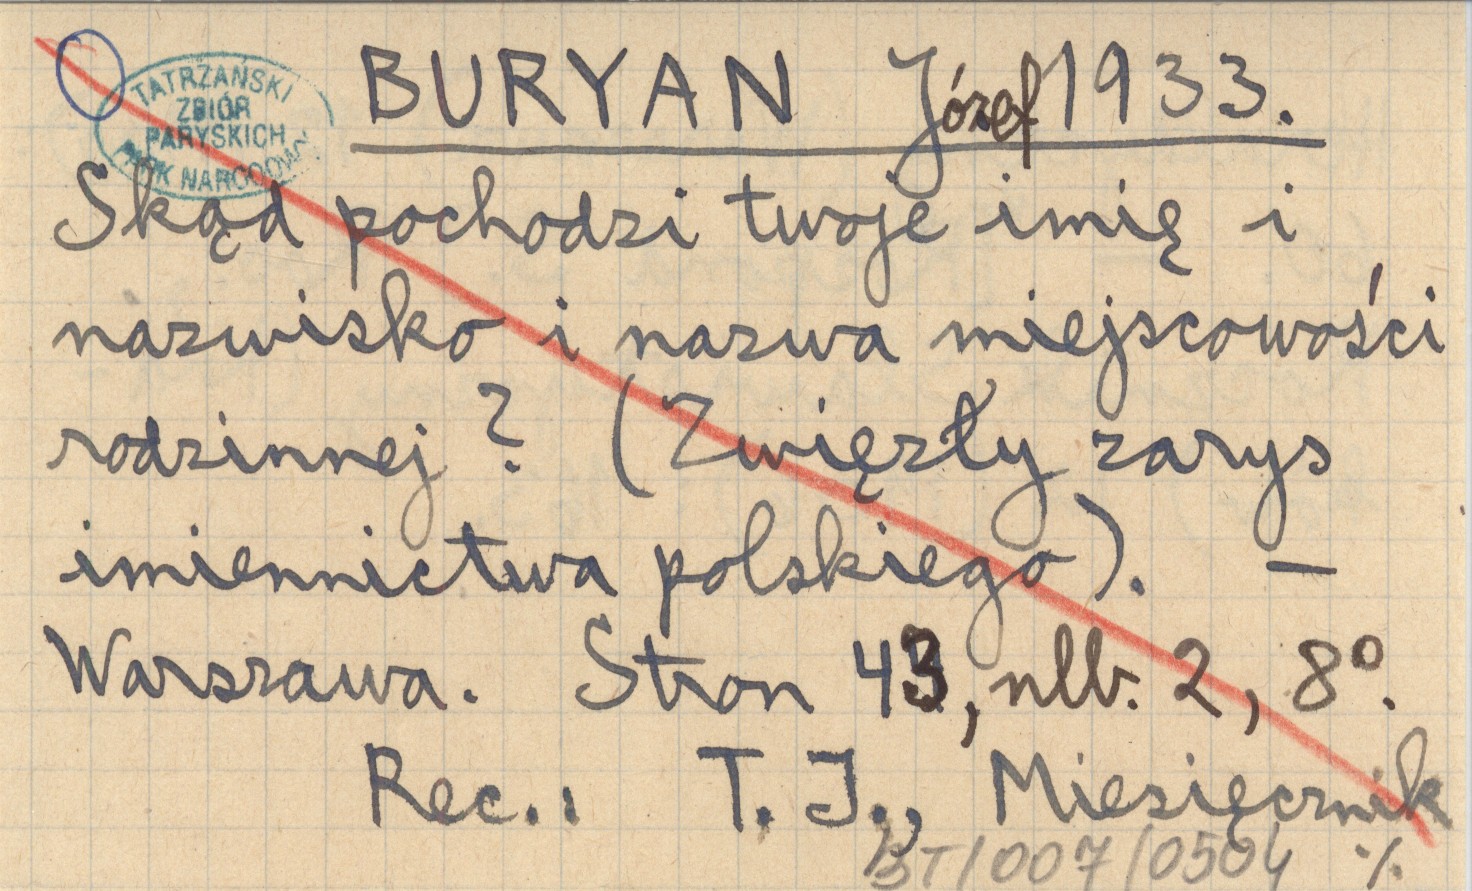 TATRZAŃSKI
ZBIÓR
PARYSKICH
PARK NARODOWY
BURYAN Józef 1933.
Skąd pochodzi twoje imię i
nazwisko i nazwa miejscowości
rodzinnej? (Zwięzły zarys
imiennictwa polskiego). —
Warszawa. Stron 43, nlb. 2, 8º.
Rec.: T. J., Miesięcznik
BT/007/0504 ·/.